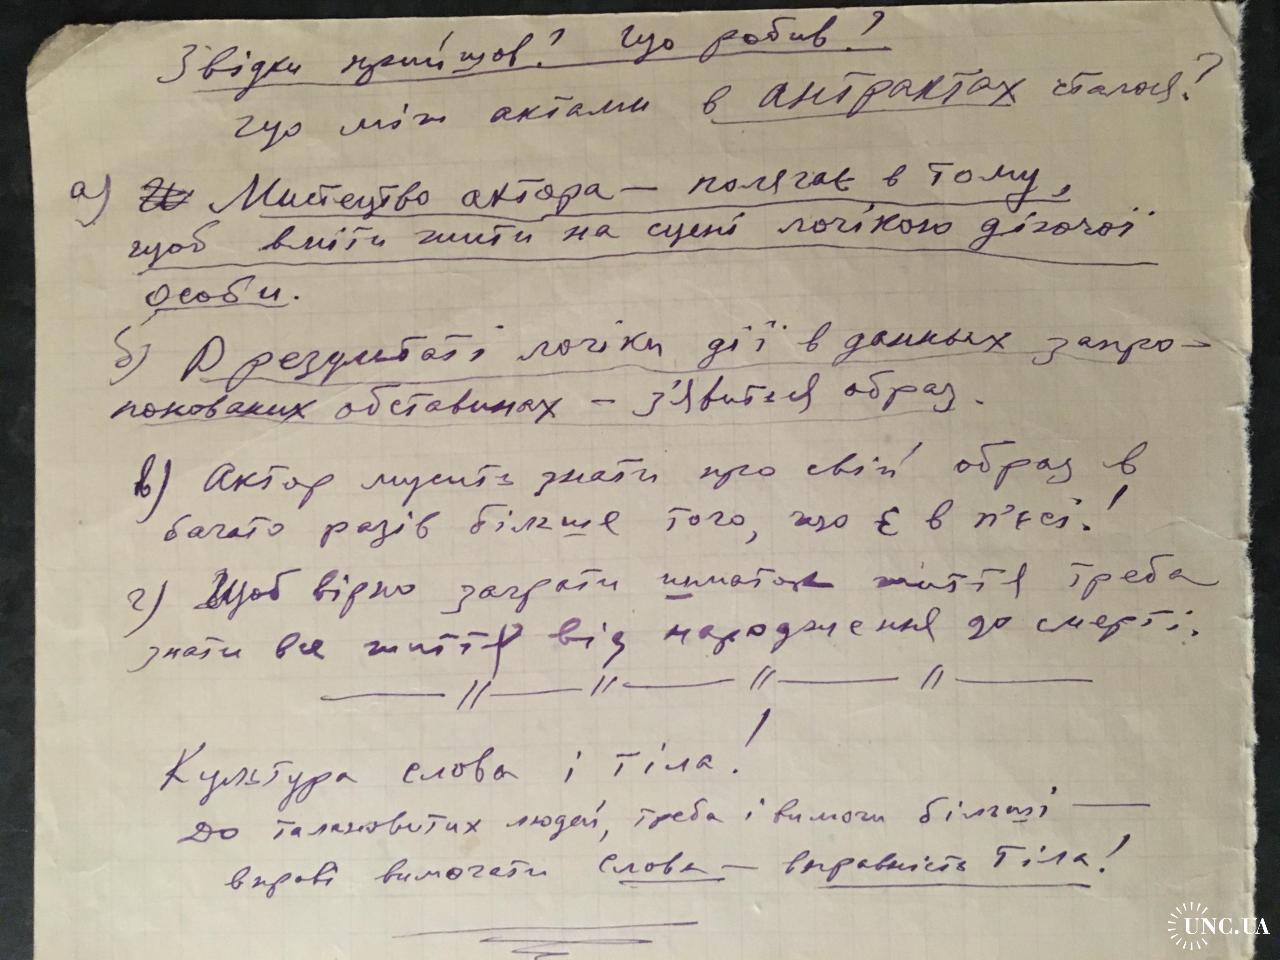 Звідки прийшов? Що робив?
Що між актами в антрактах сталося?
а) Мистецтво актора — полягає в тому,
щоб вміти жити на сцені логікою діючої
особи.
б) В результаті логіки дії в данных запро-
понованих обставинах — з'явиться образ.
в) Актор мусить знати про свій образ в
багато разів більше того, що є в п'єсі!
г) Щоб вірно заграти шматок життя треба
знати все життя від народження до смерті.
— // — // — // — // —
Культура слова і тіла!
До талановитих людей, треба і вимоги більші —
вправі вимагати слова — вправність тіла!
UNC.UA